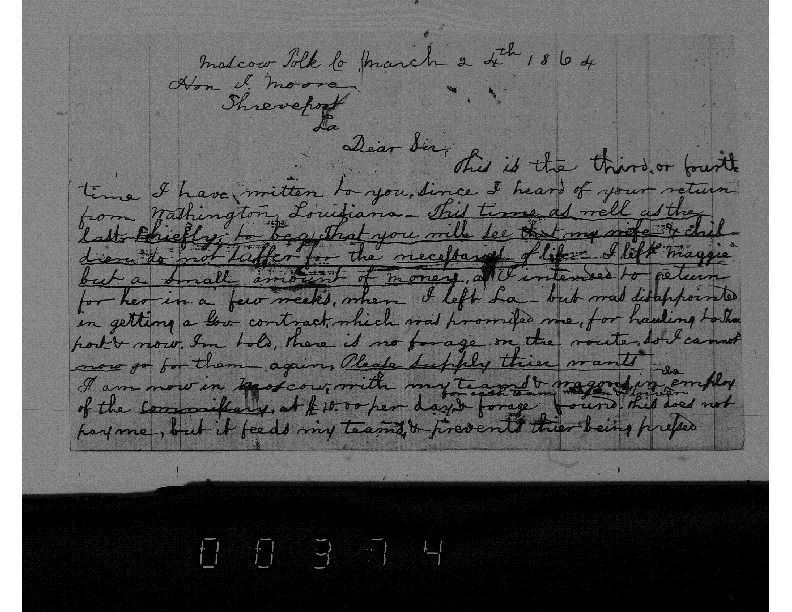 Moscow Polk Co March 24th 1864
Hon J. Moore
Shreveport
La
Dear Sir,
This is the third, or fourth
time I have written to you, since I heard of your return
from Washington, Louisiana - This time, as well as the
last, chiefly, to beg that you will see that my wife & chil
dren do not suffer for the necessaries of life - I left Maggie
but a small amount of money, as I intended to return
for her in a few weeks, when I left La - but was disappointed
in getting a Gov contract, which was promised me, for hauling
port & now, I'm told, there is no forage on the route, so I cannot
now go for them again, Please supply thier wants
I am now in Moscow, with my teams & wagons, in the employ
for each team
of the Commissary, at $10.00 per day & forage found, this does not
pay me, but it feeds my teams, & prevents thier being pressed
00374